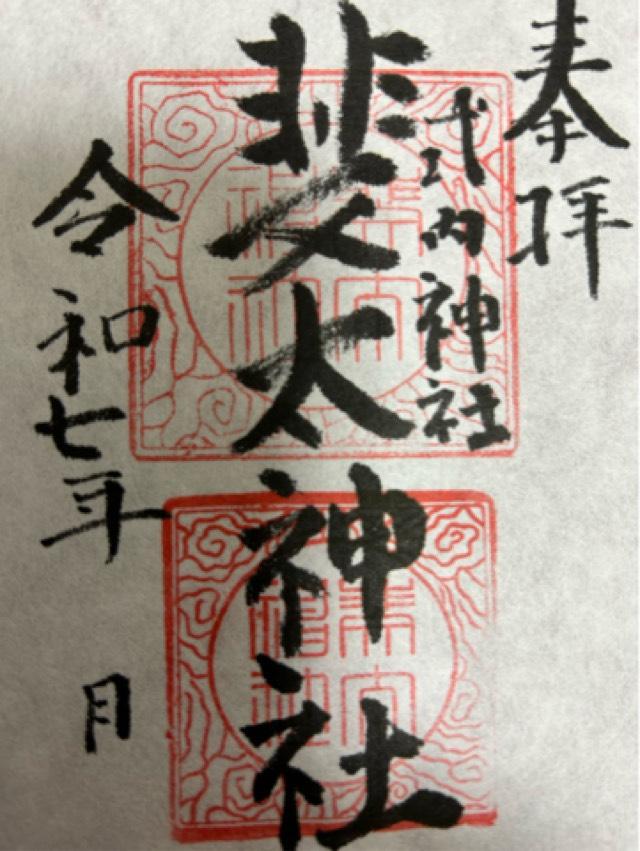 奉拝
式内神社
斐太神社
令和七年 月